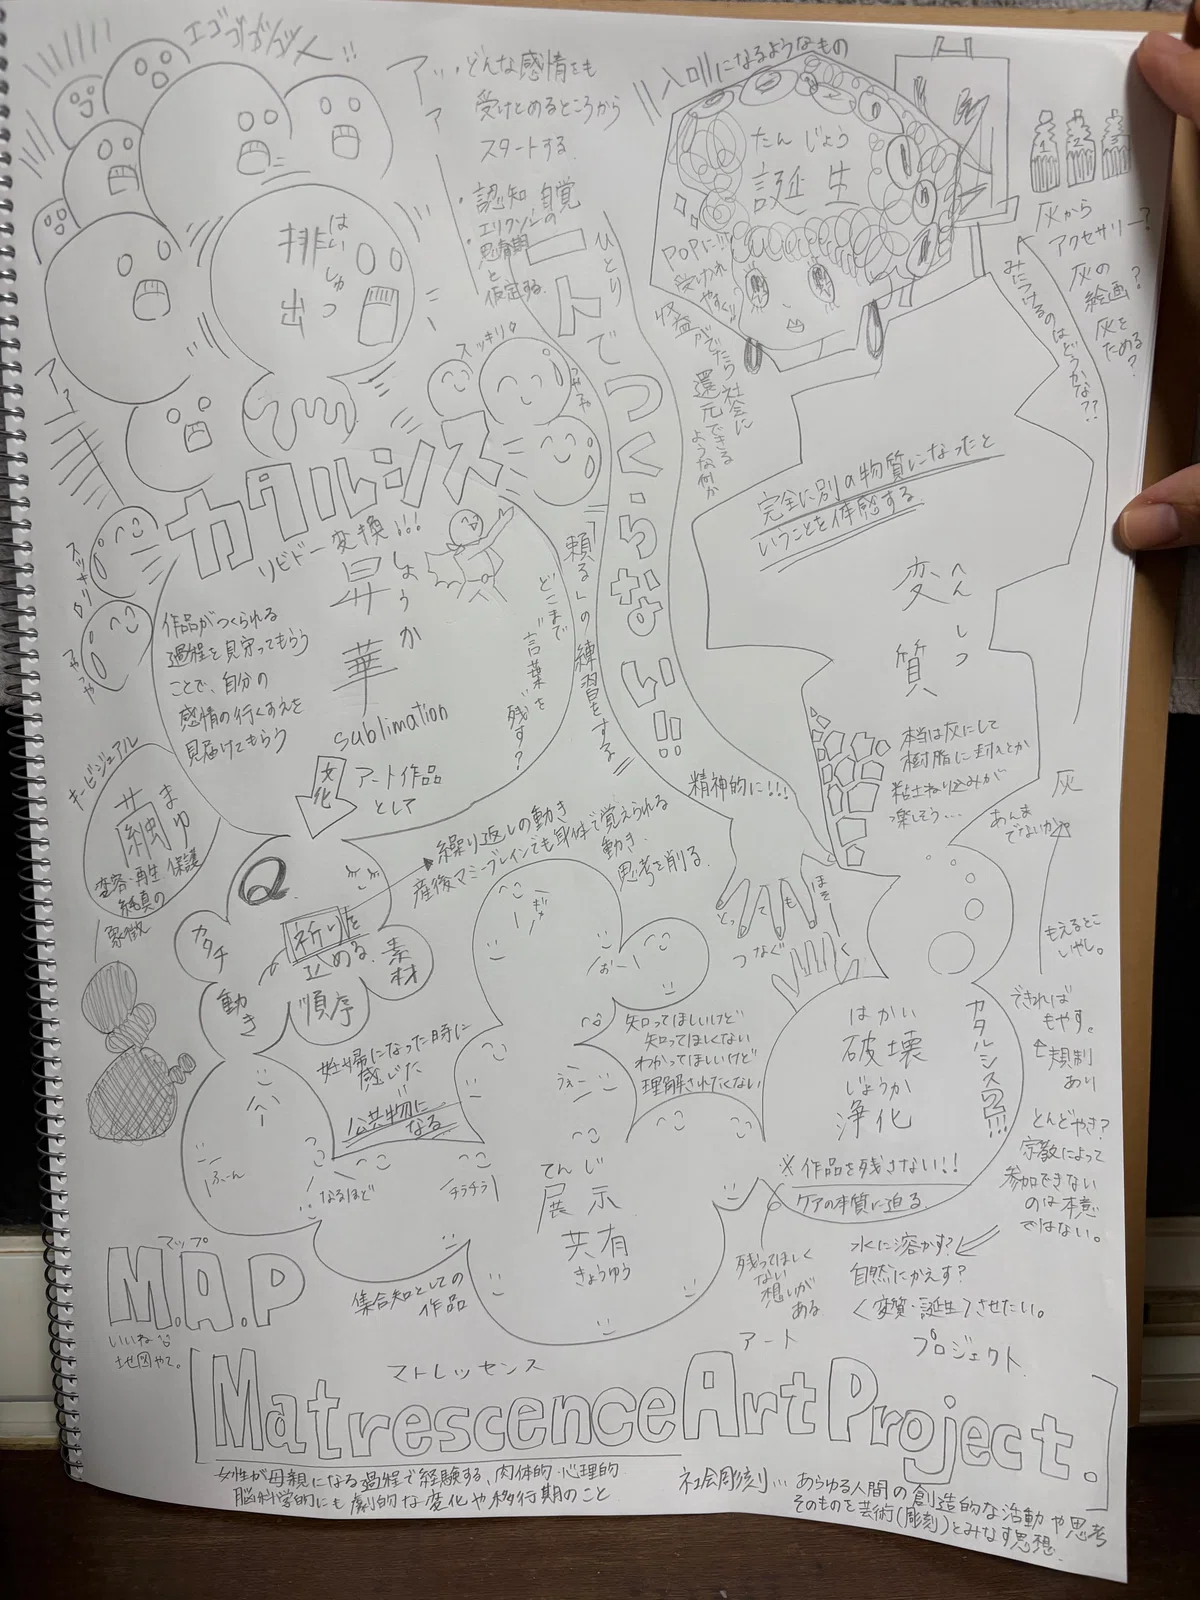 エゴゴゴゴゴ
ア
ア
どんな感情をも
受けとめるところから
スタートする
・認知 自覚
エリクソンの
思春期
と
仮定する
はいしゅつ
排出
アー
スッキリ
つやつや
カタルシス
スッキリ
つやつや
リビドー変換!!!
しょうか
昇華
sublimation
作品がつくられる
過程を見守ってもらう
ことで、自分の
感情の行くすえを
見届けてもらう
どこまで
言葉を
残す?
文化
アート作品
として
ひとり
一人でつくらない!!
「頼る」の練習をする
精神的に!!!
入口になるようなもの
たんじょう
誕生
POPに!!!
受け入れ
やすく!!
収益がでたら社会に
還元できる
ような何か
1
2
3
灰から
アクセサリー?
灰の
絵画?
灰を
ためる?
みにつけるのはどうかな??
完全に別の物質になったと
いうことを体感する
へんしつ
変質
本当は灰にして
樹脂に封入とか
粘土ねり込みが
楽しそう…
あんま
でないかも
灰
もえるとこ
いやし。
できれば
もやす。
規制
あり
とんどやき?
宗教によって
参加できない
のは本意
ではない。
キービジュアル
まゆ
繭
変容・再生・保護
純真の
象徴
Q
カタチ
祈りを
止める
素材
動き
順序
繰り返しの動き
産後マミーブレインでも身体で覚えられる
動き
思考を削る
妊婦になった時に
感じた
公共物に
なる
知ってほしいけど
知ってほしくない
わかってほしいけど
理解されたくない
とっても
ほそー
つなぐ
はかい
破壊
じょうか
浄化
カタルシス2!!!
※作品を残さない!!
ケアの本質に迫る
ふーん
なるほど
チラチラ
おー
うぇー
てんじ
展示
共有
きょうゆう
集合知としての
作品
残ってほしく
ない
想いが
ある
水に溶かす?
自然にかえす?
変質・誕生させたい。
マップ
M.A.P
いいね
地図やて。
マトレッセンス
アート
プロジェクト
Matrescence Art Project.
女性が母親になる過程で経験する、肉体的・心理的
脳科学的にも劇的な変化や移行期のこと
社会彫刻…あらゆる人間の創造的な活動や思考
そのものを芸術(彫刻)とみなす思想